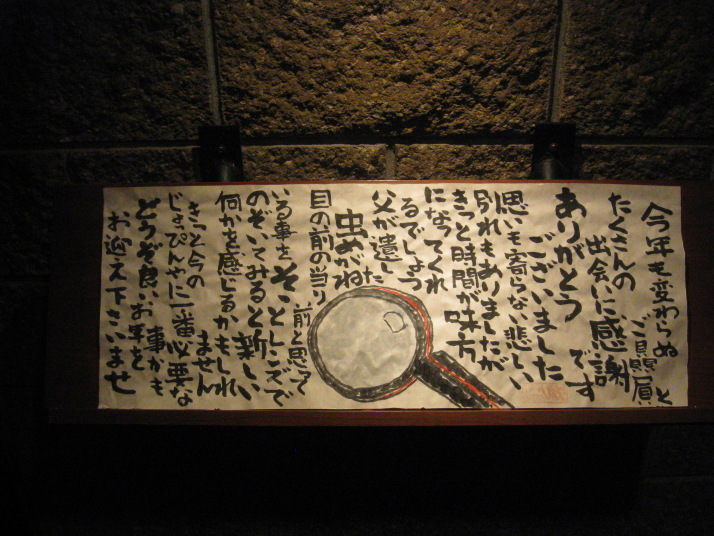 今年も変わらぬ
ご贔屓と
たくさんの
出会いに感謝
です
ありがとう
ございました
思いも寄らない悲しい
別れもありましたが
きっと時間が味方
になってくれ
るでしょう
父が遺した
虫めがね
目の前の当り
前と思って
いる事をそっとレンズで
のぞいてみると新しい
何かを感じるかもしれ
ません
きっと今の
じょっぴんやに一番必要な
事かも
どうぞ良いお年を
お迎え下さいませ